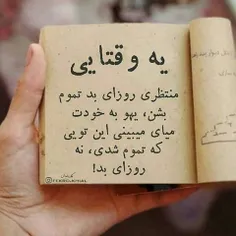 یه وقتایی
منتظری روزای بد تموم
بشن، یهو به خودت
میای میبینی این تویی
که تموم شدی، نه
روزای بد!